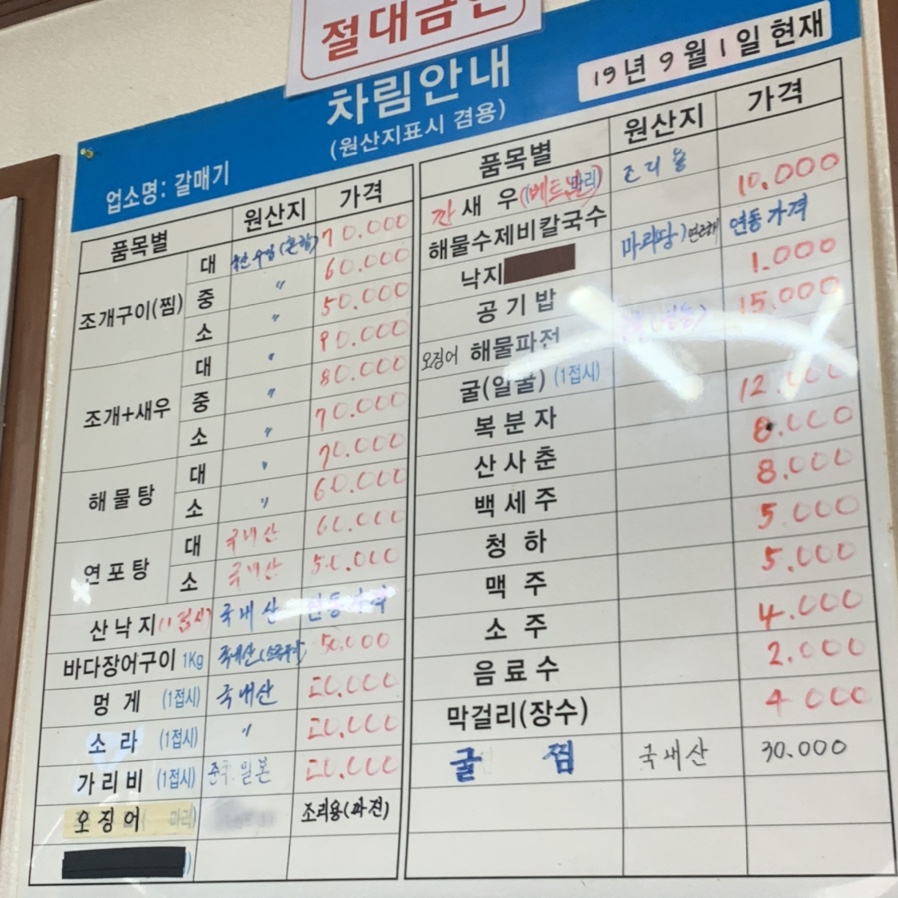 절대금연
차림안내
(원산지표시 겸용)
19년 9월 1일 현재
업소명: 갈매기
품목별 원산지 가격
조개구이(찜) 대 70.000
중 〃 60.000
소 〃 50.000
조개+새우 대 〃 90.000
중 〃 80.000
소 〃 70.000
해물탕 대 〃 70.000
소 〃 60.000
연포탕 대 국내산 60.000
소 국내산 50.000
산낙지(1접시) 국내산 연동가격
바다장어구이 1Kg 국내산 50.000
멍게 (1접시) 국내산 20.000
소라 (1접시) 〃 20.000
가리비 (1접시) 일본 20.000
오징어 마리) 조리용(파전)
품목별 원산지 가격
깐새우(베트남) 조리용
해물수제비칼국수 10.000
낙지 마리당) 연동가격
공기밥 1.000
오징어 해물파전 15.000
굴(일굴) (1접시)
복분자 12.000
산사춘 8.000
백세주 8.000
청하 5.000
맥주 5.000
소주 4.000
음료수 2.000
막걸리(장수) 4000
굴찜 국내산 30.000